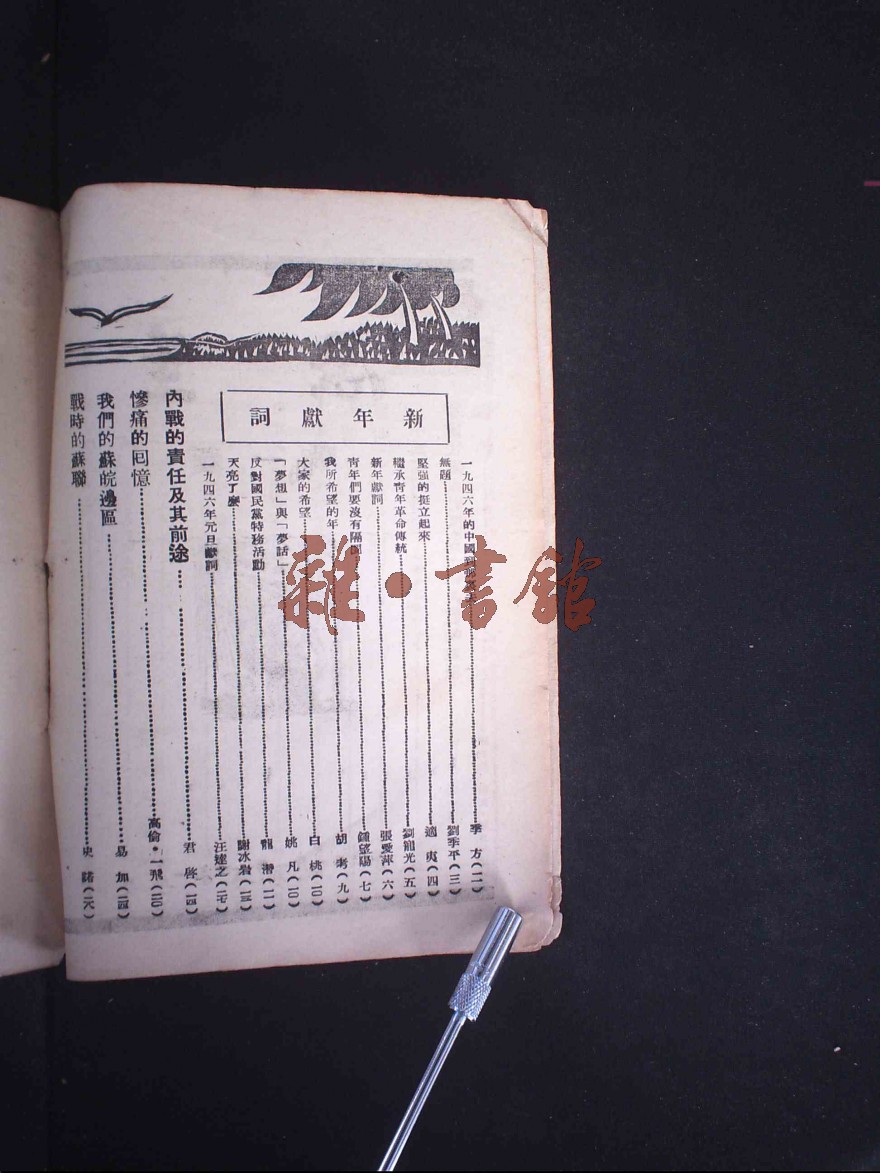 新年獻詞
一九四六年的中國 季方(一)
無題 劉季平(三)
堅強的挺立起來 適夷(四)
繼承青年革命傳統 光(五)
新年獻詞 張愛萍(六)
青年們要沒有隔 鍾望陽(七)
我所希望的年 胡考(九)
大家的希望 白桃(10)
「夢想」與「夢話」 姚凡(10)
反對國民黨特務活動 龍潛(一一)
天亮了麼 謝冰岩(一三)
一九四六年元旦獻詞 汪達之(一七)
內戰的責任及其前途 君啓(一四)
慘痛的回憶 高倫・一飛(二〇)
我們的蘇皖邊區 易加(二四)
戰時的蘇聯 史諾(二八)
雜・書館